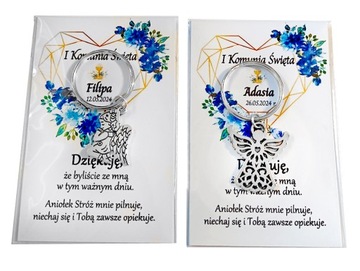 I Komunia Święta
Filipa
12.05.2024
Dziękuję,
że byliście ze mną
w tym ważnym dniu.
Aniołek Stróż mnie pilnuje,
niechaj się i Tobą zawsze opiekuje.
I Komunia Święta
Adasia
26.05.2024
uję,
że byliście ze mną
w tym ważnym dniu.
Aniołek Stróż mnie pilnuje,
niechaj się i Tobą zawsze opiekuje.